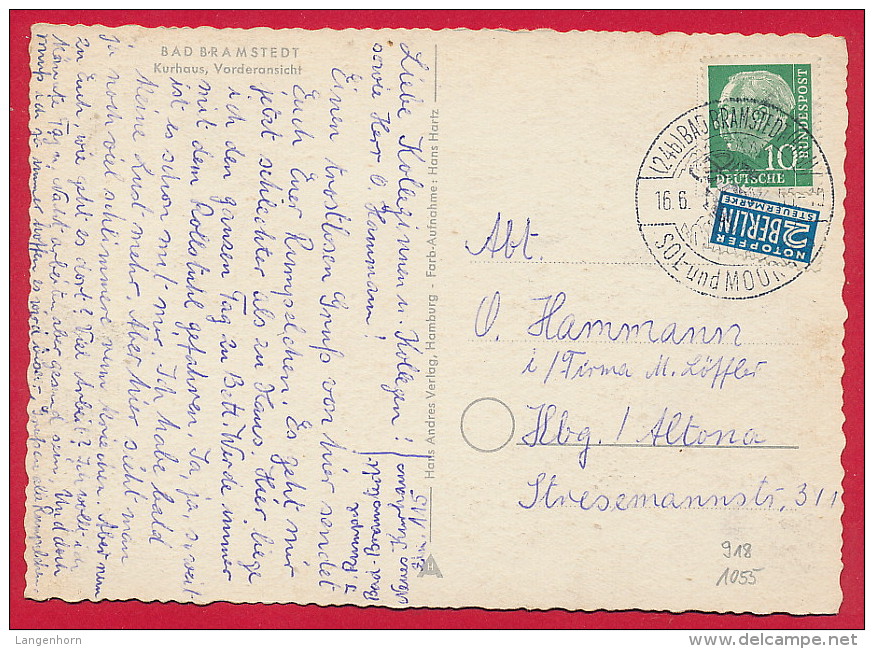 BAD BRAMSTEDT
Kurhaus, Vorderansicht
Liebe Kolleginnen u. Kollegen!
sowie Herr O. Hammann!
Einen trostlosen Gruß von hier sendet
Euch Euer Rumpelchen. Es geht mir
jetzt schlechter als zu Haus. Hier liege
ich den ganzen Tag im Bett. Werde immer
mit dem Rollstuhl gefahren. Ja, ja, so weit
ist es schon mit mir. Ich habe bald
keine Lust mehr. Aber hier sieht man
ja noch viel schlimmere rum kriechen. Aber nun
zu Euch, wie geht es dort? Viel Arbeit? Ich wollt ich
könnte Tag u. Nacht arbeiten aber gesund sein. Und doch
muss ich ja immer hoffen es wird
Bad-Bramstedt
Hans Andres Verlag, Hamburg - Farb-Aufnahme: Hans Hartz
DEUTSCHE
BUNDESPOST
10
NOTOPFER
2 BERLIN
STEUERMARKE
(24b) BAD BRAMSTEDT
16.6.
SOL- und MOOR
Abt.
O. Hammann
i/Firma M. Löffler
Hbg. / Altona
Stresemannstr. 311
918
1055
Langenhorn